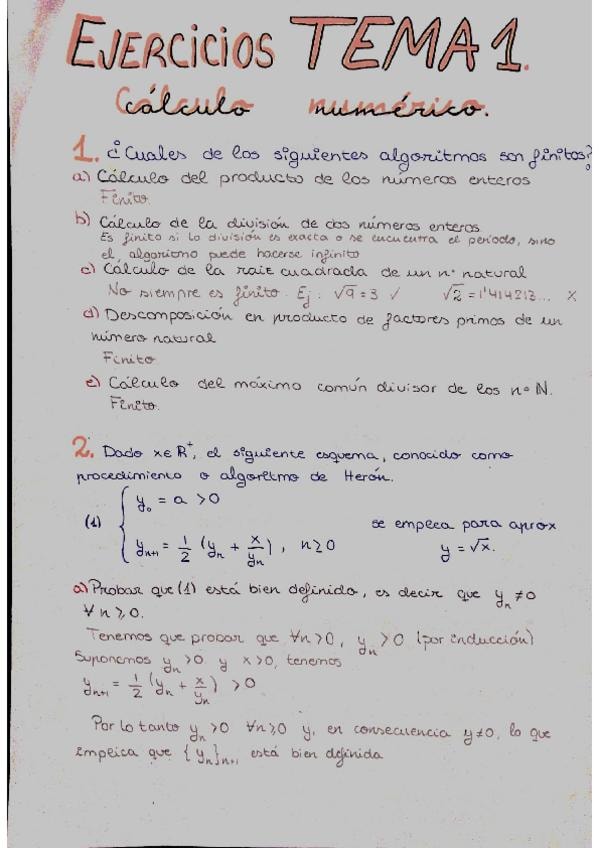 EJERCICIOS TEMA 1.
Cálculo numérico.
1. ¿Cuales de los siguientes algoritmos son finitos?
a) Cálculo del producto de los números enteros
Finito.
b) Cálculo de la división de dos números enteros
Es finito si la división es exacta o se encuentra el periodo, sino
el algoritmo puede hacerse infinito
c) Cálculo de la raíz cuadrada de un nº natural
No siempre es finito. Ej: √9 = 3 ✓ √2 = 1'414213... X
d) Descomposición en producto de factores primos de un
número natural
Finito
e) Cálculo del máximo común divisor de los nº N.
Finito.
2. Dado x∈R⁺, el siguiente esquema, conocido como
procedimiento o algoritmo de Herón.
(1) { y₀ = a > 0 se emplea para aprox
yₙ₊₁ = 1/2 (yₙ + x/yₙ), n≥0 y = √x.
a) Probar que (1) está bien definido, es decir que yₙ ≠ 0
∀ n ≥ 0.
Tenemos que probar que ∀n>0, yₙ > 0 (por inducción)
Suponemos yₙ > 0 y x > 0, tenemos
yₙ₊₁ = 1/2 (yₙ + x/yₙ) > 0
Por lo tanto yₙ > 0 ∀n≥0 y, en consecuencia y≠0, lo que
implica que {yₙ}ₙ₊₁ está bien definida